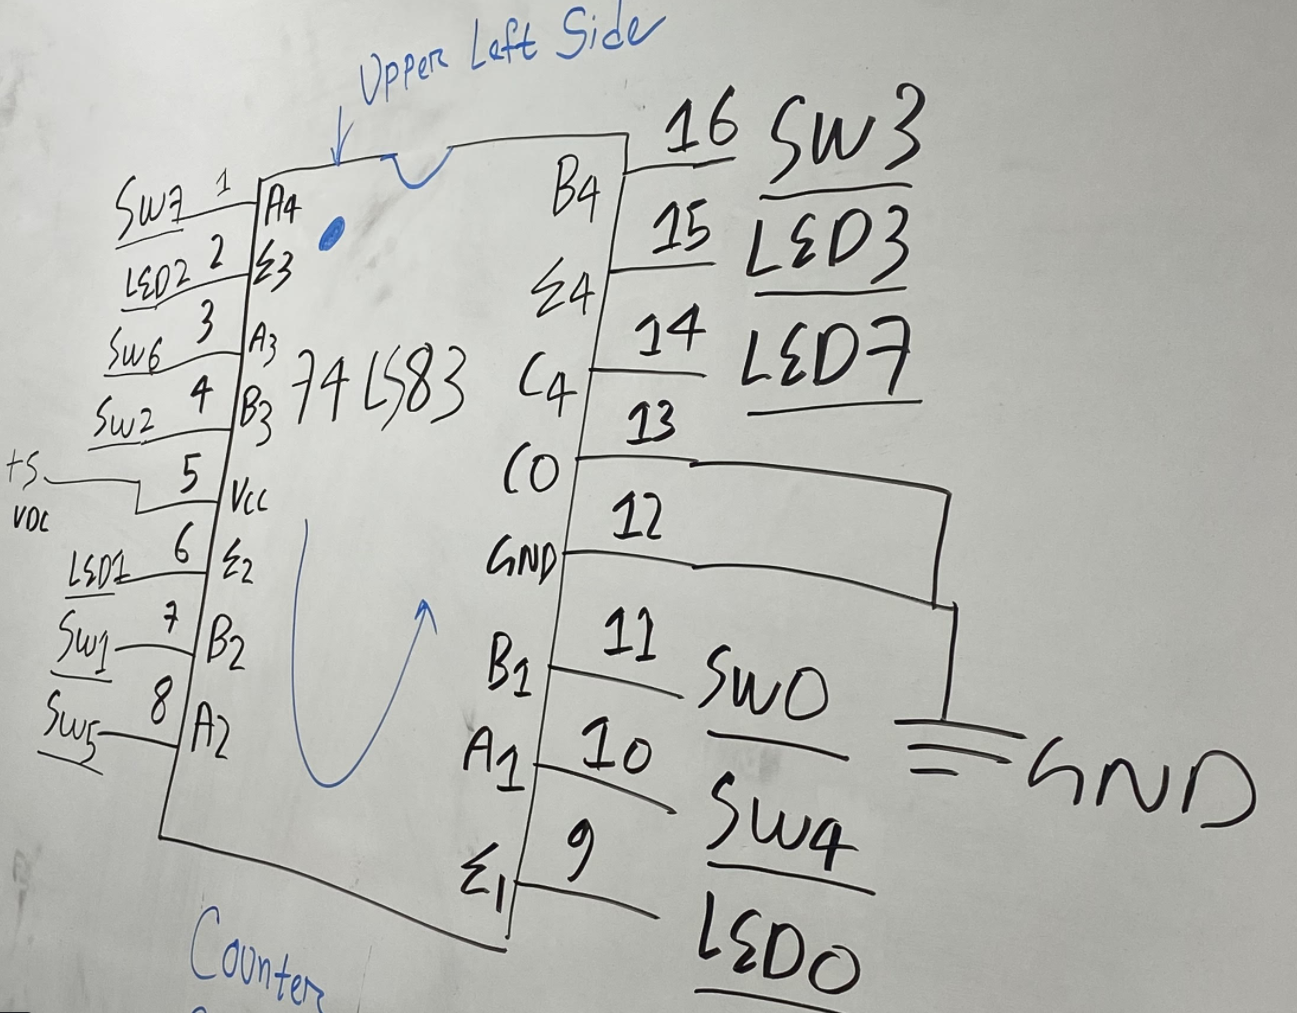 Upper Left Side
SW7 1 A4
LED2 2 Σ3
SW6 3 A3
SW2 4 B3
+5 VDC 5 VCC
LED1 6 Σ2
SW1 7 B2
SW5 8 A2
74LS83
B4 16 SW3
Σ4 15 LED3
C4 14 LED7
C0 13
GND 12
GND
B1 11 SW0
A1 10 SW4
Σ1 9 LED0
Counter